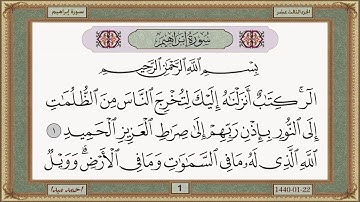 سورة إبراهيم
الجزء الثالث عشر
سُورَةُ إِبْرَاهِيم
بِسْمِ اللَّهِ الرَّحْمَٰنِ الرَّحِيمِ
الٓر ۚ كِتَٰبٌ أَنزَلْنَٰهُ إِلَيْكَ لِتُخْرِجَ ٱلنَّاسَ مِنَ ٱلظُّلُمَٰتِ
إِلَى ٱلنُّورِ بِإِذْنِ رَبِّهِمْ إِلَىٰ صِرَٰطِ ٱلْعَزِيزِ ٱلْحَمِيدِ ١
ٱللَّهِ ٱلَّذِى لَهُۥ مَا فِى ٱلسَّمَٰوَٰتِ وَمَا فِى ٱلْأَرْضِ ۗ وَوَيْلٌ
1
1440-01-22